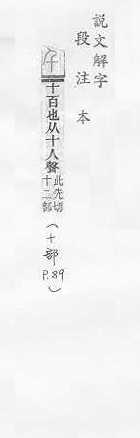 說文解字
段注本
千 十百也从十人聲 此先切
十二部
(十部
P.89
)